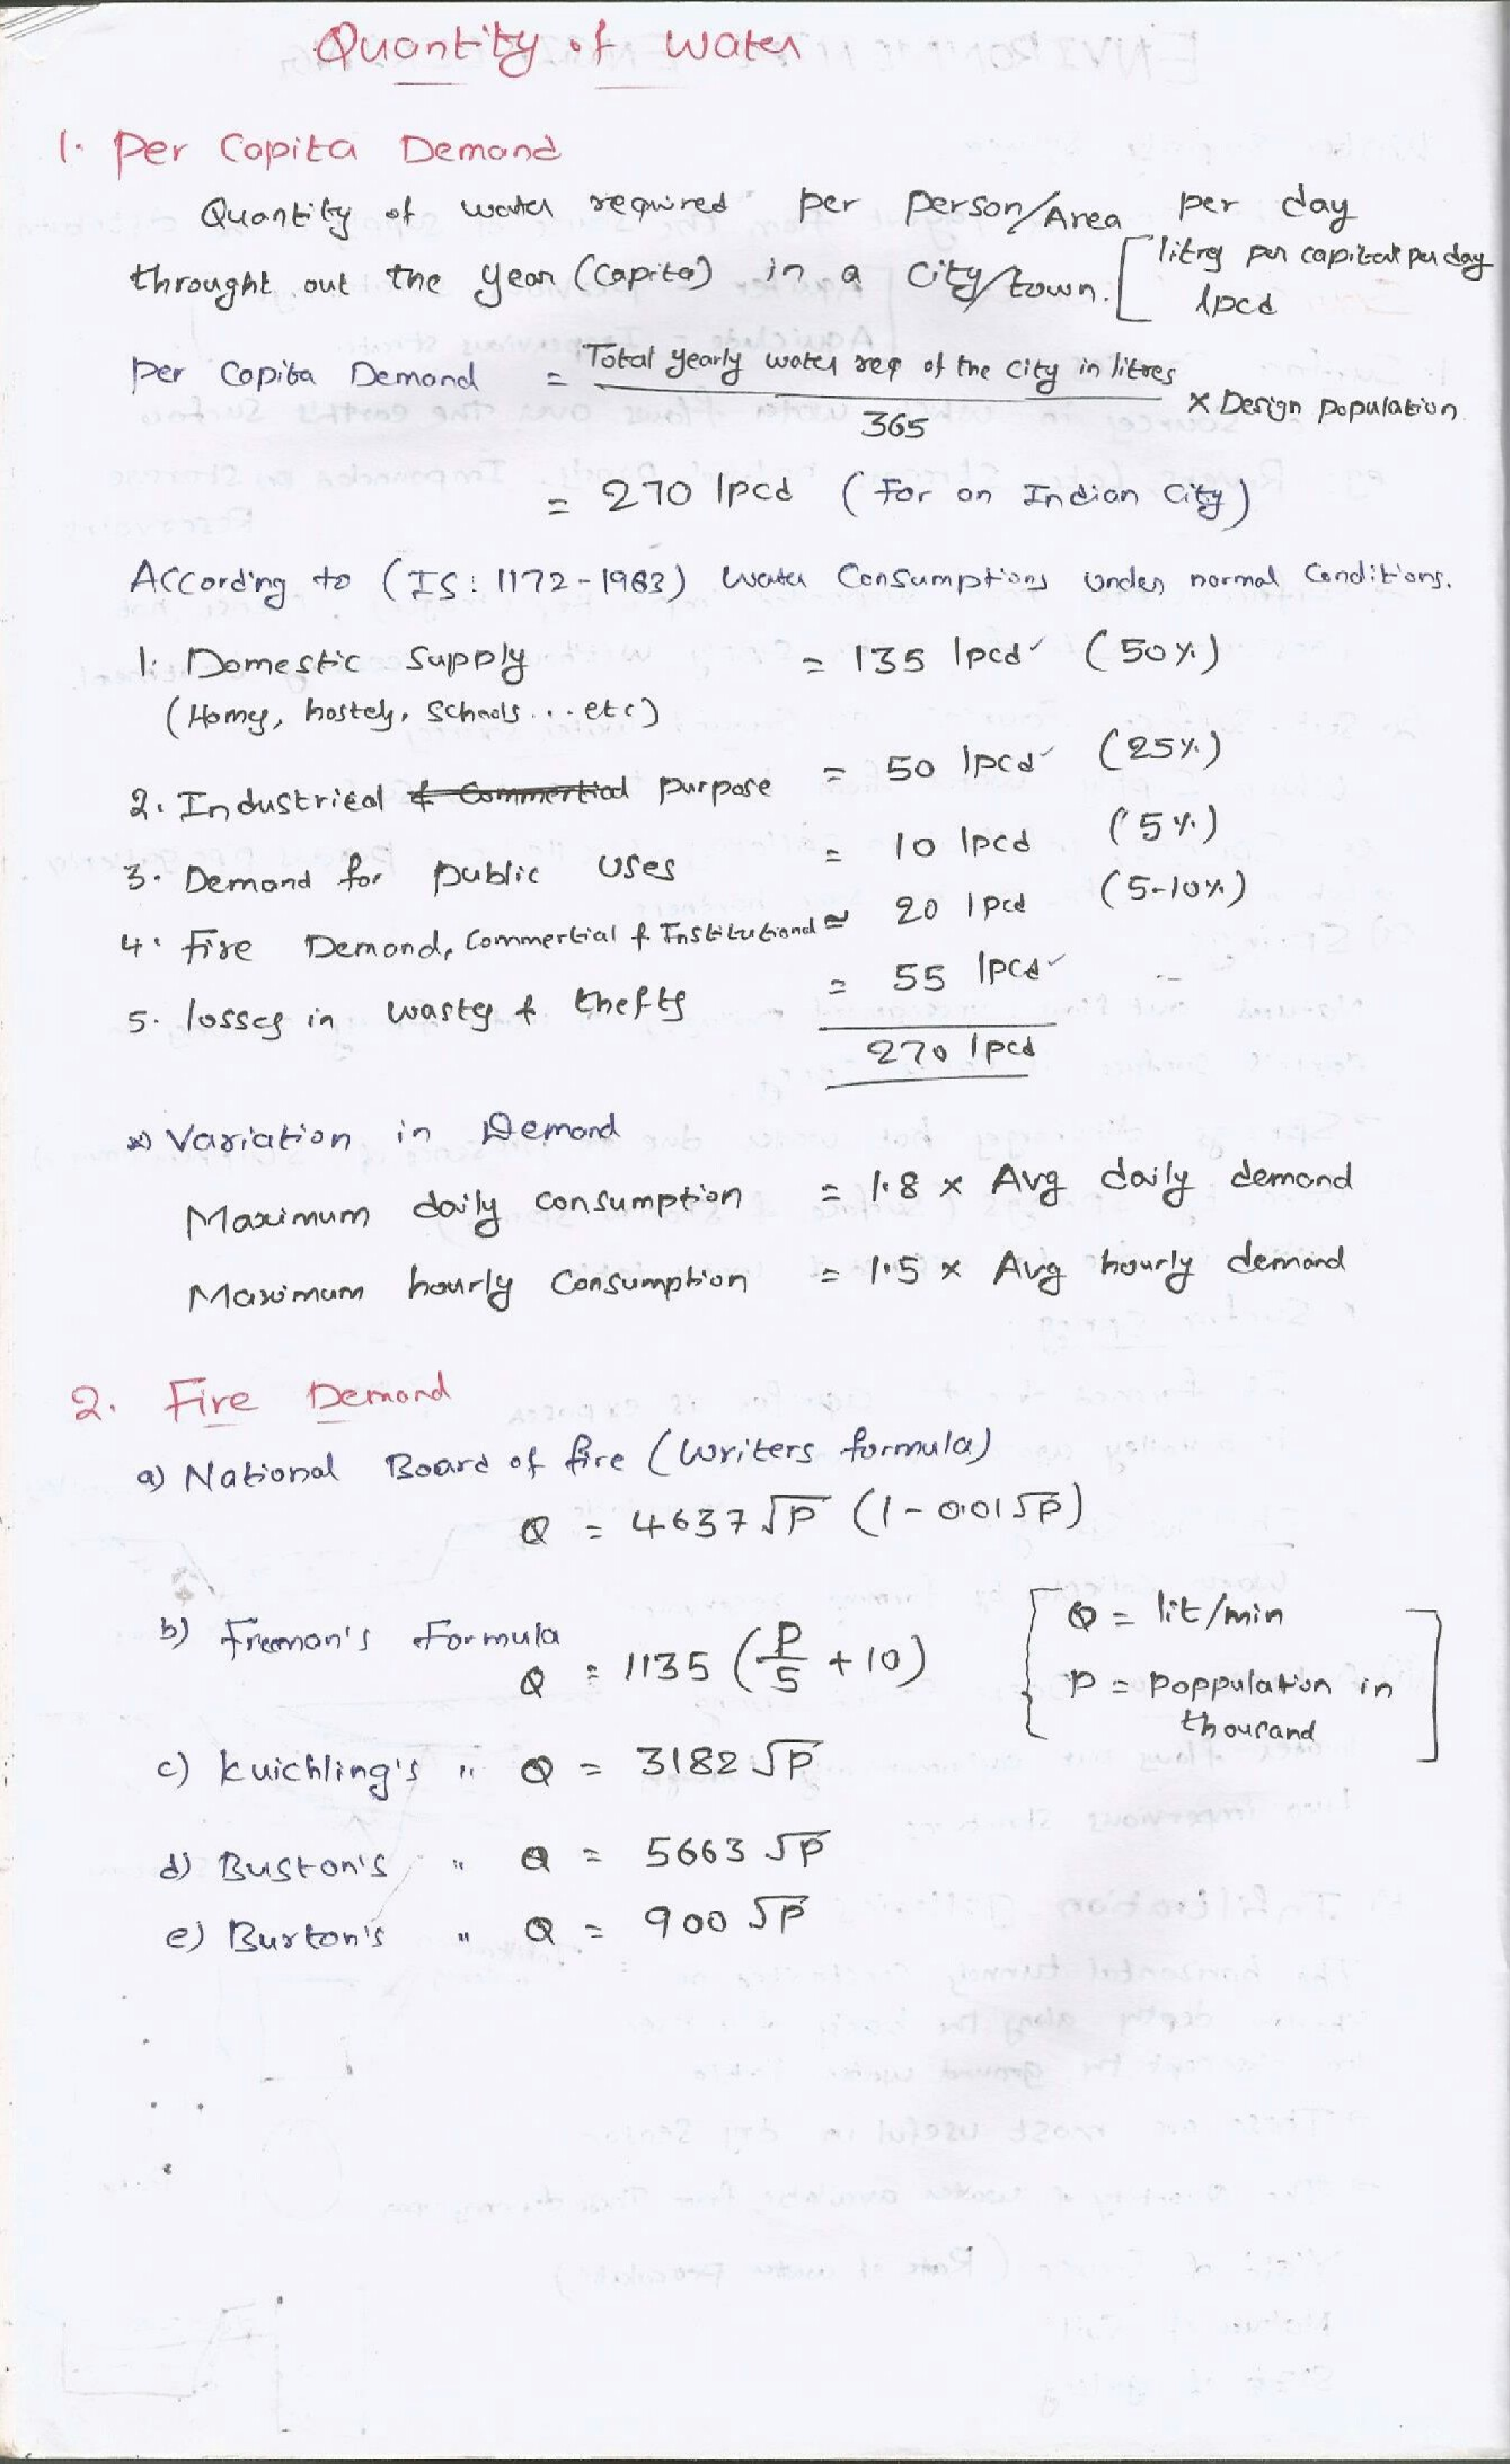 Quantity of water
1. Per Capita Demand
Quantity of water required per person/Area per day
throught out the year (Capita) in a City/town. [litres per capita per day
lpcd
Per Capita Demand = Total yearly water req of the city in litres
365 × Design population
= 270 lpcd (For an Indian City)
According to (IS: 1172-1983) water Consumptions under normal Conditions.
1. Domestic Supply = 135 lpcd (50%)
(Homes, hostels, Schools...etc)
2. Industrial & Commertial purpose = 50 lpcd (25%)
3. Demand for public Uses = 10 lpcd (5%)
4. Fire Demand, Commertial & Institutional = 20 lpcd (5-10%)
5. losses in wastes & thefts = 55 lpcd
270 lpcd
*) Variation in Demand
Maximum daily consumption = 1.8 × Avg daily demand
Maximum hourly Consumption = 1.5 × Avg hourly demand
2. Fire Demand
a) National Board of fire (Writers formula)
Q = 4637 √P (1-0.01√P)
b) Freeman's Formula
Q = 1135 (P/5 + 10) [Q = lit/min
P = poppulation in
thousand]
c) Kuichling's " Q = 3182 √P
d) Buston's " Q = 5663 √P
e) Burton's " Q = 900 √P